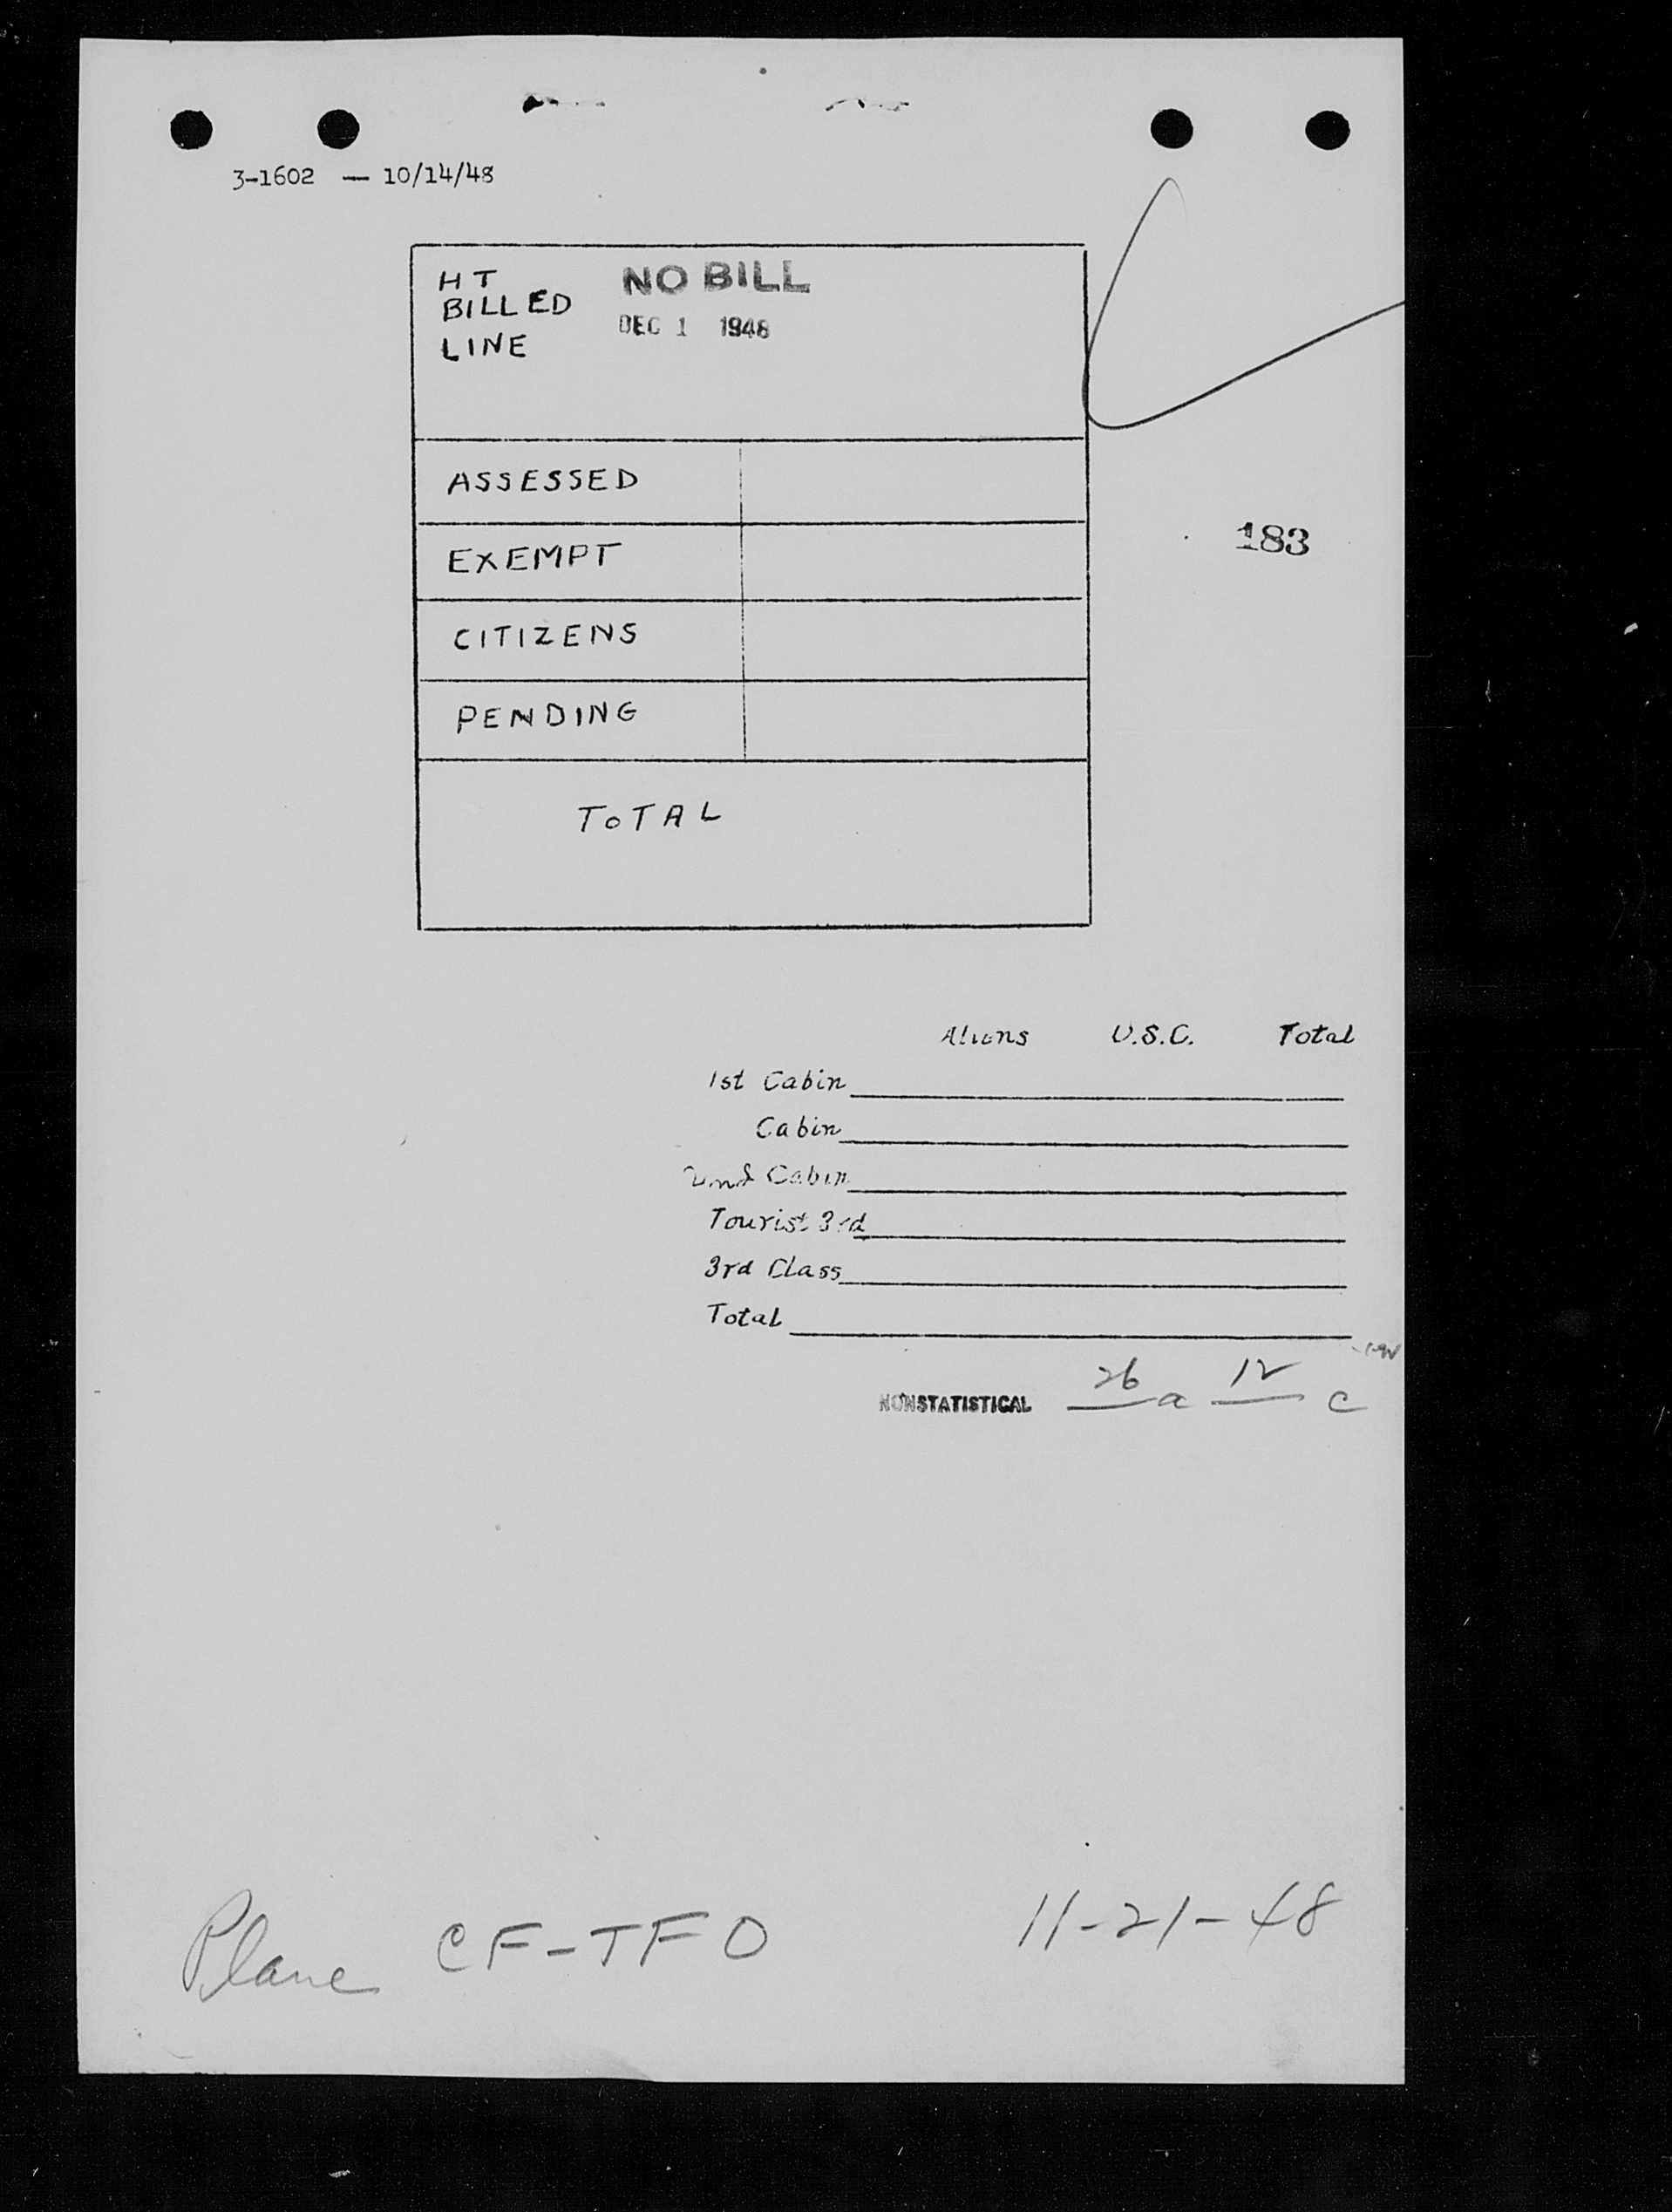 3-1602 — 10/14/48
HT NO BILL
BILLED DEC 1 1948
LINE
ASSESSED
EXEMPT
183
CITIZENS
PENDING
TOTAL
Aliens U.S.C. Total
1st Cabin
Cabin
2nd Cabin
Tourist 3rd
3rd Class
Total
NONSTATISTICAL 26 a 12 c
Plane CF-TFO 11-21-48